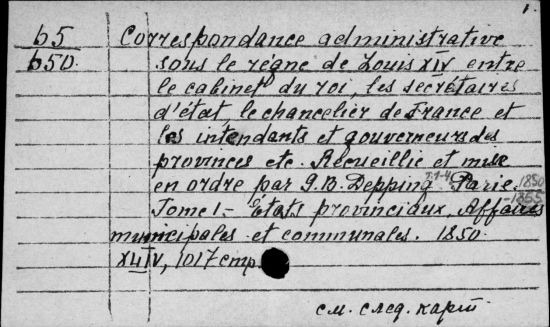 1.
65
650.
Correspondance administrative
sous le règne de Louis XIV entre
le cabinet du roi, les secrétaires
d'état, le chancelier de France et
les intendants et gouverneurs des
provinces etc. Recueillie et mise
en ordre par G.B. Depping. T.1-4. Paris. 1850
-1855
Tome I.- Etats provinciaux, Affaires
municipales et communales. 1850.
, 1017 стр
см. след. карт